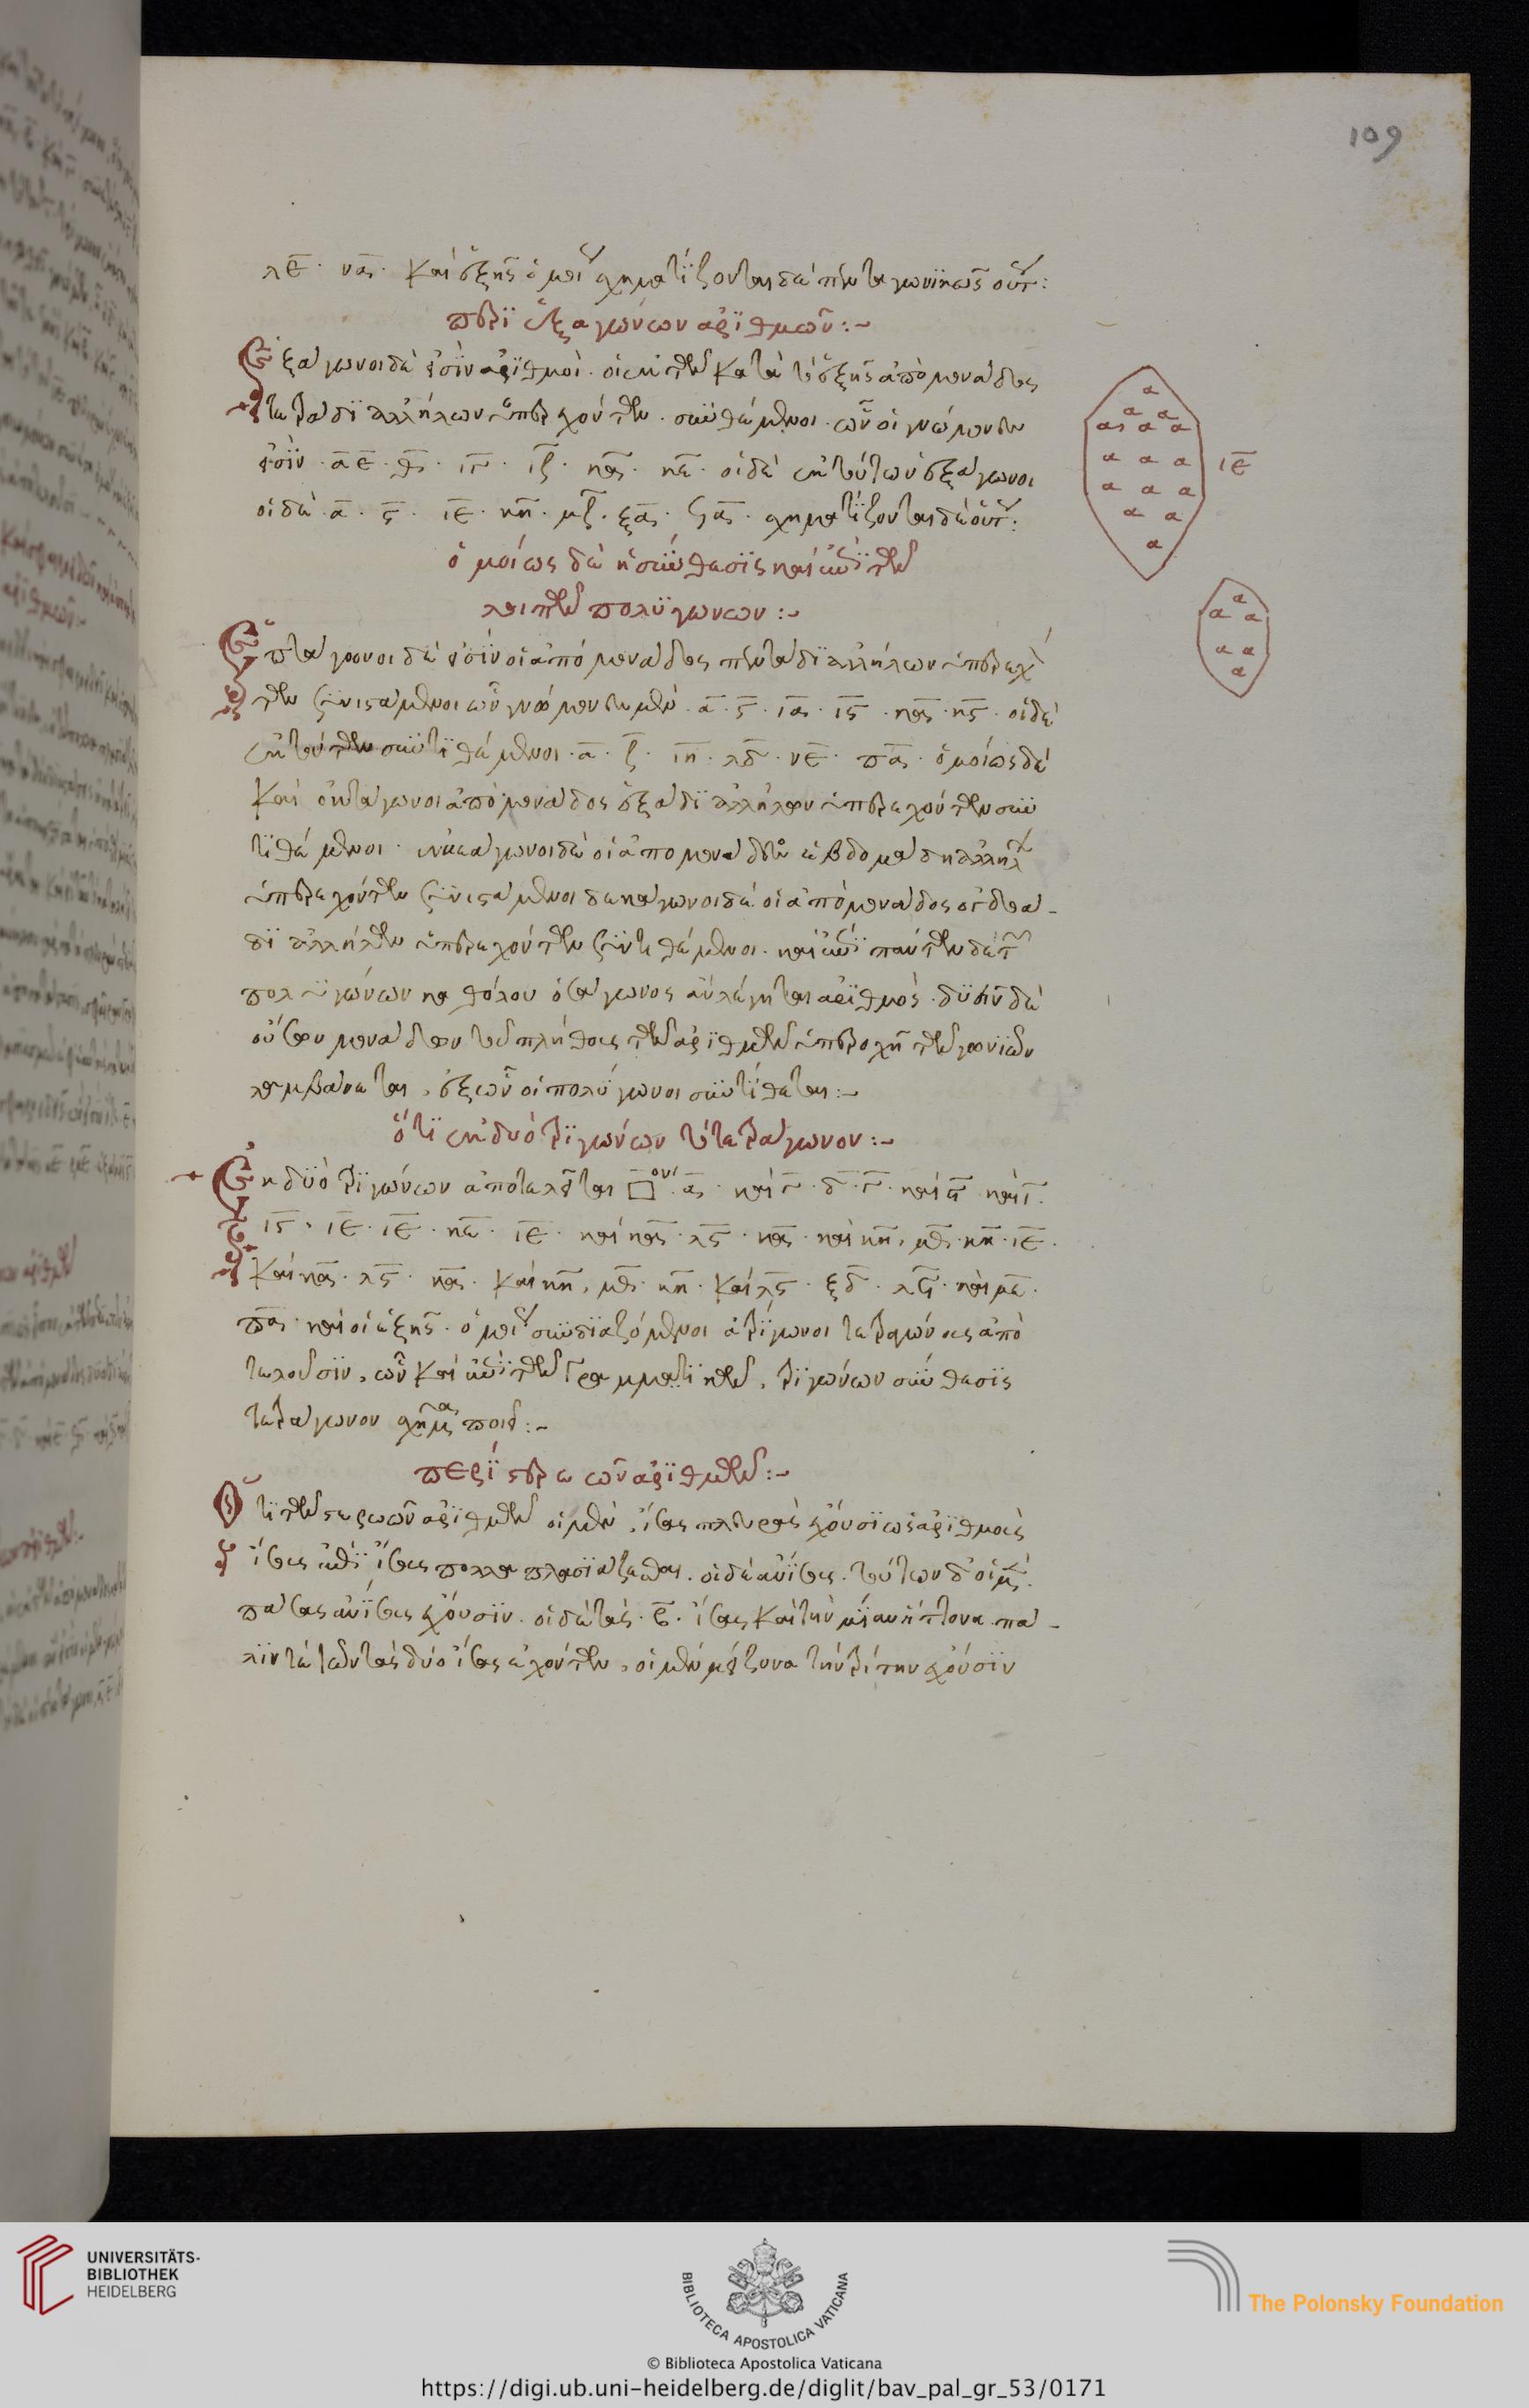 109
λε̅ · να̅ · καὶ ἑξῆς ὁμοί σχηματίζονται δὲ πενταγωνικῶς οὕτ :
περὶ ἑξαγώνων ἀριθμῶν :~
Ἑξάγωνοι δέ εἰσιν ἀριθμοὶ · οἱ ἐκ τῶν κατὰ τὸ ἑξῆς ἀπὸ μονάδος
τετράδι ἀλλήλων ὑπερεχόντων · συνθέμενοι · ὧν οἱ γνώμονες
εἰσιν · α̅ ε̅ · θ̅ · ιγ̅ · ιζ̅ · κα̅ · κε̅ · οἱ δὲ ἐκ τούτων ἑξάγωνοι
οἱ δὲ · α̅ · ϛ̅ · ιε̅ · κη̅ · μζ̅ · ξα̅ · ϟα̅ · σχηματίζονται δὲ οὕτ :
ὁμοίως δὲ ἡ σύνθεσις καὶ ἐπὶ τῶν
λοιπῶν πολυγώνων :~
Ἑπτάγωνοι δέ εἰσιν οἱ ἀπὸ μονάδος πεντάδι ἀλλήλων ὑπερεχόν
των συνιστάμενοι ὧν γνώμονες μὲν · α̅ · ϛ̅ · ια̅ · ιϛ̅ · κα̅ · κϛ̅ · οἱ δὲ
ἐκ τούτων συντιθέμενοι · α̅ · ζ̅ · ιη̅ · λδ̅ · νε̅ · πα̅ · ὁμοίως δὲ
καὶ ὀκτάγωνοι ἀπὸ μονάδος ἑξάδι ἀλλήλων ὑπερεχόντων συν
τιθέμενοι · ἐννεάγωνοι δὲ οἱ ἀπο μονάδος ἑβδομάδι ἀλλήλ
ὑπερεχόντων συνιστάμενοι δεκάγωνοι δὲ οἱ ἀπὸ μονάδος ὀγδοά-
δι ἀλλήλων ὑπερεχόντων συντιθέμενοι · καὶ ἐπὶ πάντων δὲ τ
πολυγώνων καθόλου ὁσάγωνος ἂν λέγηται ἀριθμὸς · δυεῖν δὲ
οὕτων μονάδων τοῦ πλήθους τῶν ἀριθμῶν ὑπεροχὴ τῶν γωνιῶν
λαμβάνεται , ἐξ ὧν οἱ πολύγωνοι συντίθεται :~
ὅτι ἐκ δυὸ τριγώνων τετράγωνον :~
Ἐκ δυὸ τριγώνων ἀποτελεῖται □ον · α̅ · καὶ γ̅ · δ̅ · γ̅ · καὶ ϛ̅ καὶ ι̅ ·
ιϛ̅ · ιε̅ · ιε̅ · κε̅ · ιε̅ · καὶ κα̅ · λϛ̅ · κα̅ · καὶ κη̅ , μθ̅ · κη̅ · ιε̅ ·
καὶ κα̅ · λϛ̅ · κα̅ · καὶ κη̅ , μθ̅ · κη̅ · καὶ λϛ̅ · ξδ̅ · λϛ̅ · καὶ με̅ ·
πα̅ · καὶ οἱ ἑξῆς · ὁμοί συνδιαζόμενοι τρίγωνοι τετραγώνους ἀπὸ
τελοῦσιν , ὧν καὶ ἐπὶ τῶν γραμματικῶν , τριγώνων σύνθεσις
τετράγωνον σχῆμα ποιεῖ :~
περὶ στερεῶν ἀριθμῶν :~
Ὅτι τῶν στερεῶν ἀριθμῶν οἱ μὲν , ἴσας πλευρὰς ἔχουσιν ὡς ἀριθμοὺς
ἴσους ἐπὶ ἴσους πολλαπλασιάζεσθαι · οἱ δὲ ἀνίσους · τούτων δ' οἱ μ ·
πάσας ἀνίσους ἔχουσιν · οἱ δὲ τὰς · β̅ · ἴσας καὶ τὴν μίαν ἥττονα πά-
λιν τὲ τῶν τὰς δύο ἴσας ἐχόντων , οἱ μὲν μείζονα τὴν τρίτην ἔχουσιν
α
α α
α α α
α α α ιε̅
α α α
α α
α
α
α α
α α
α
UNIVERSITÄTS-
BIBLIOTHEK
HEIDELBERG
BIBLIOTECA APOSTOLICA VATICANA
The Polonsky Foundation
© Biblioteca Apostolica Vaticana
https://digi.ub.uni-heidelberg.de/diglit/bav_pal_gr_53/0171